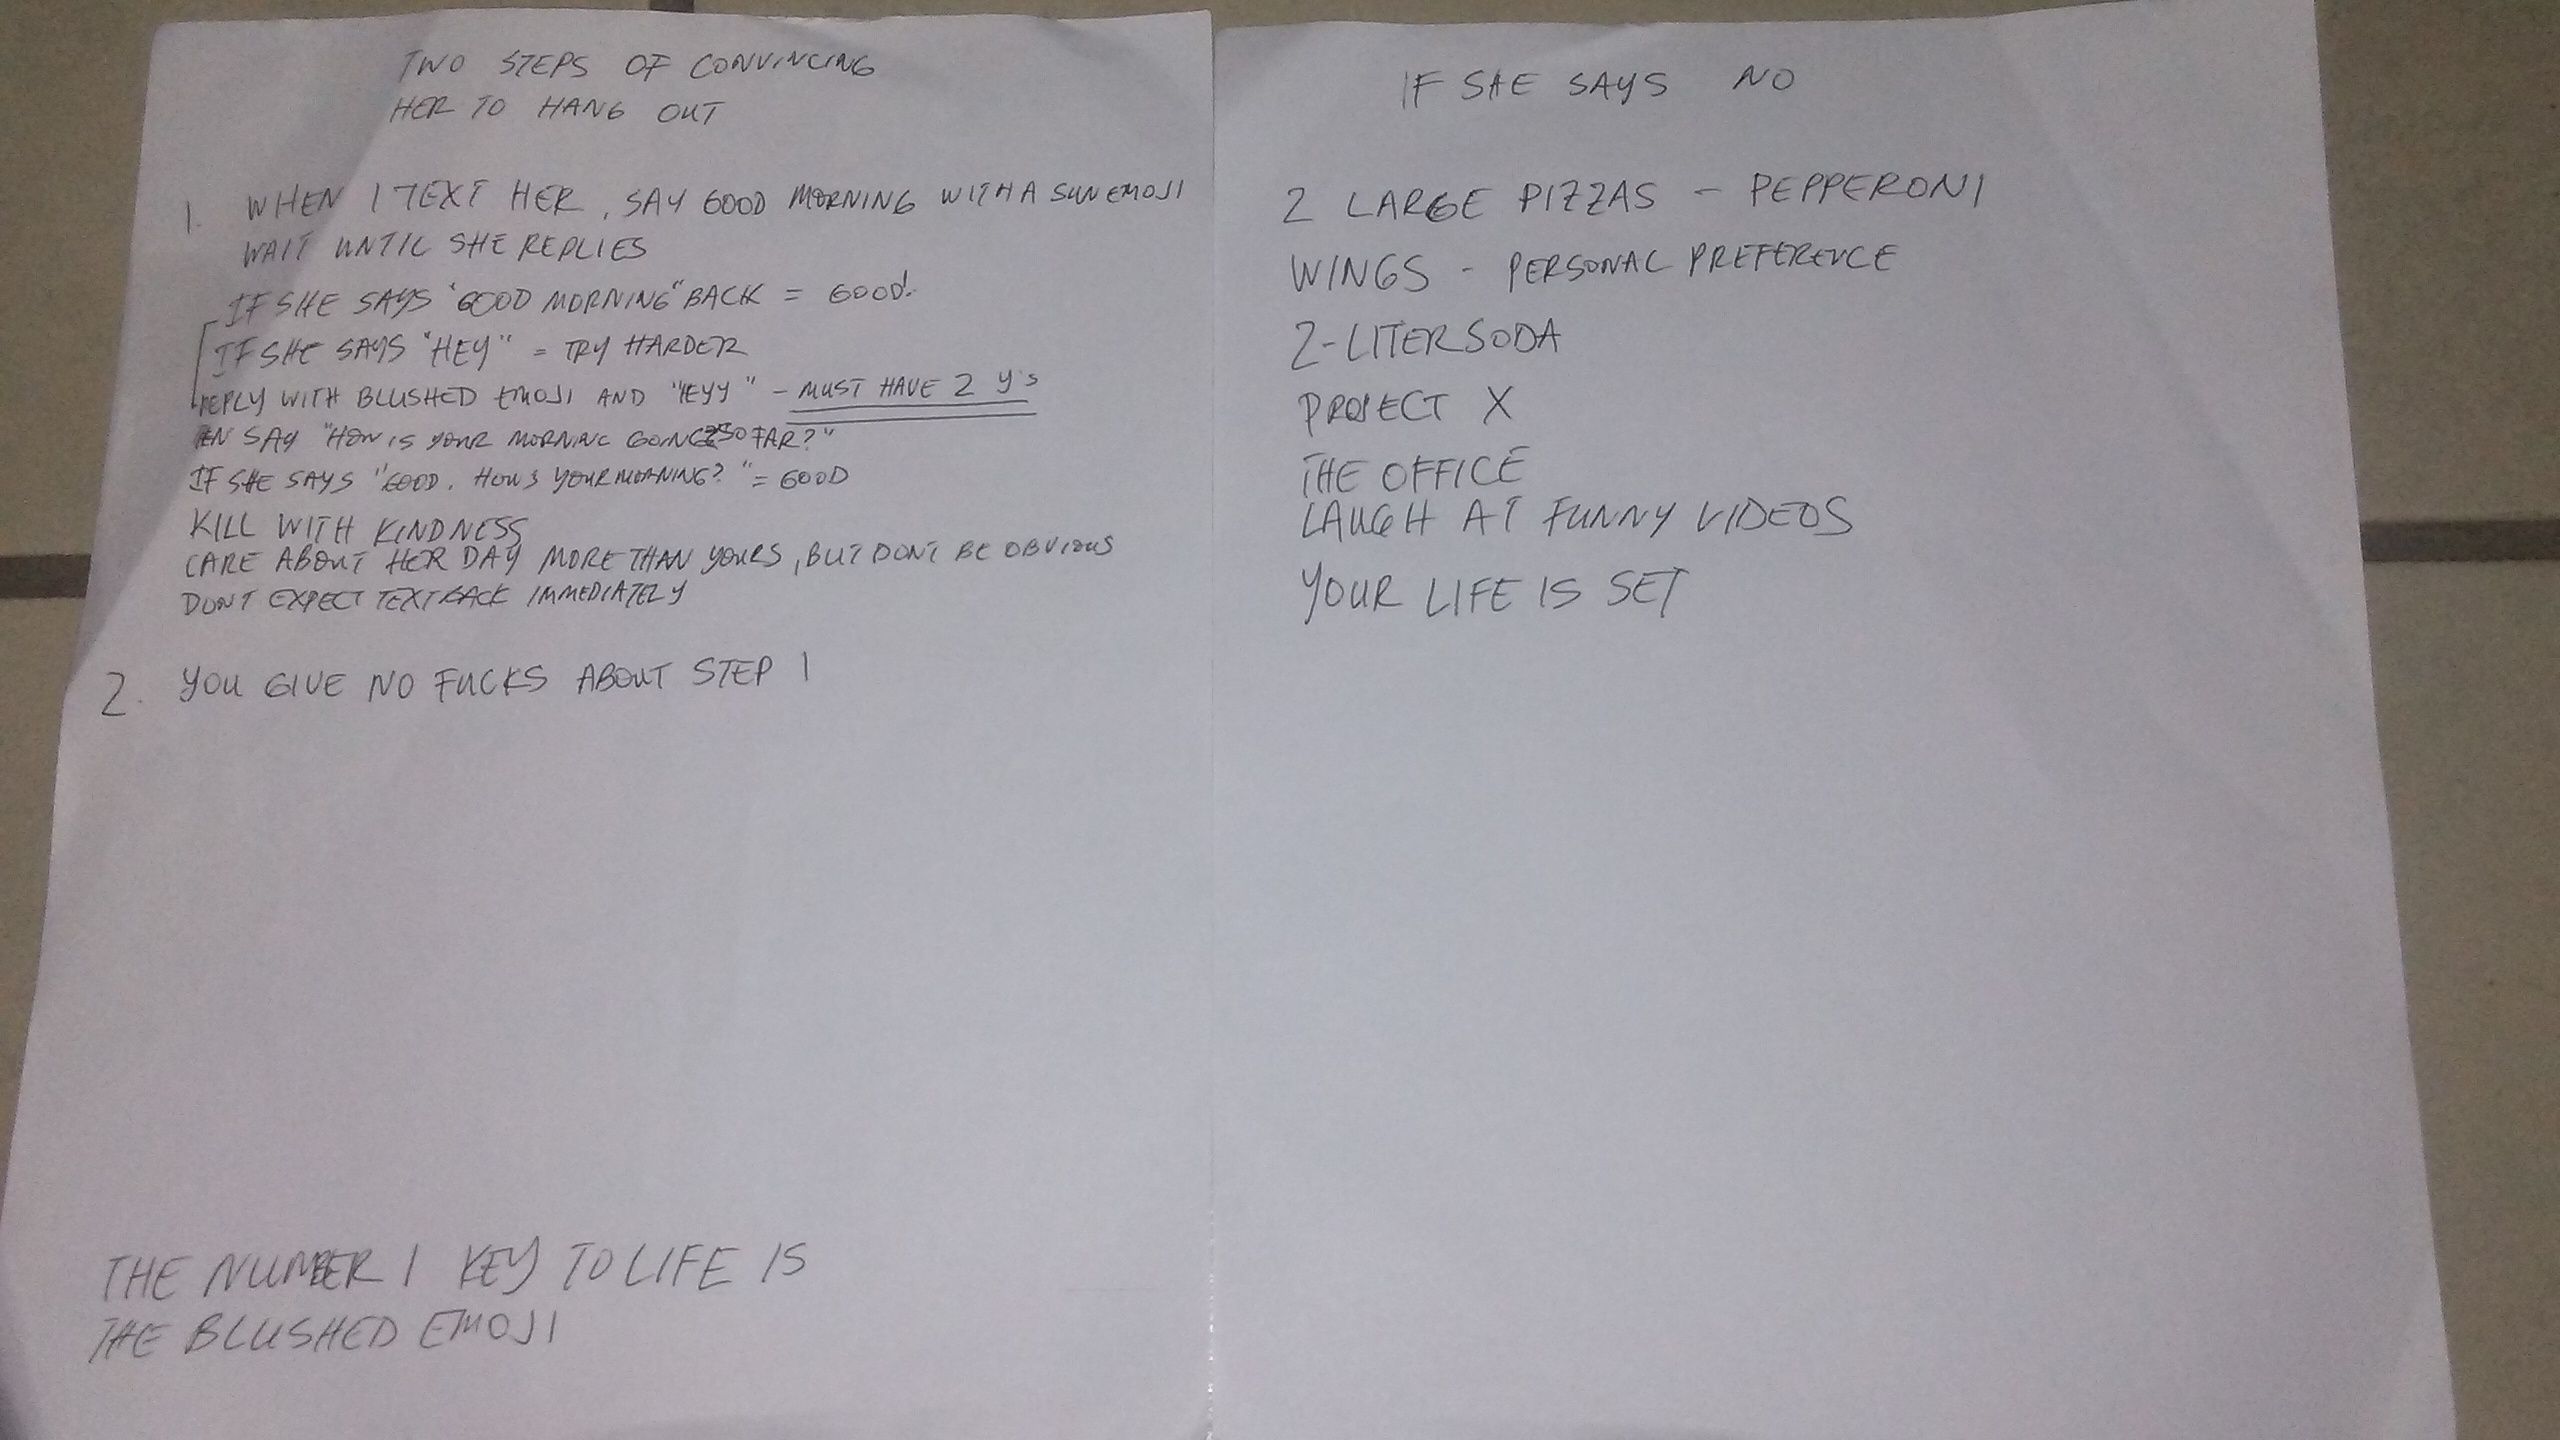 TWO STEPS OF CONVINCING
HER TO HANG OUT
1. WHEN I TEXT HER, SAY GOOD MORNING WITH A SUN EMOJI
WAIT UNTIL SHE REPLIES
IF SHE SAYS "GOOD MORNING" BACK = GOOD!
IF SHE SAYS "HEY" = TRY HARDER
REPLY WITH BLUSHED EMOJI AND "HEYY" - MUST HAVE 2 Y'S
SAY "HOW IS YOUR MORNING GOING SO FAR?"
IF SHE SAYS "GOOD. HOW'S YOUR MORNING?" = GOOD
KILL WITH KINDNESS
CARE ABOUT HER DAY MORE THAN YOURS, BUT DONT BE OBVIOUS
DONT EXPECT TEXT BACK IMMEDIATELY
2. YOU GIVE NO FUCKS ABOUT STEP 1
THE NUMBER 1 KEY TO LIFE IS
THE BLUSHED EMOJI
IF SHE SAYS NO
2 LARGE PIZZAS - PEPPERONI
WINGS - PERSONAL PREFERENCE
2-LITER SODA
PROJECT X
THE OFFICE
LAUGH AT FUNNY VIDEOS
YOUR LIFE IS SET